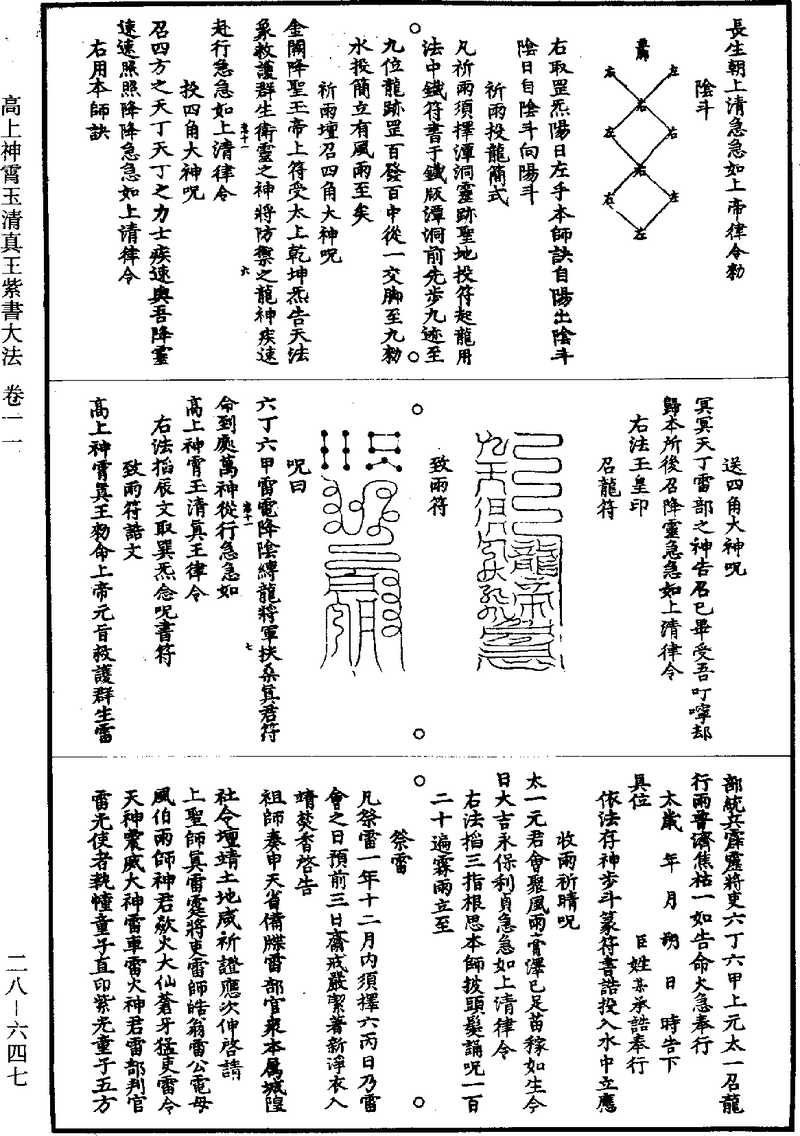 長生朝上清急急如上帝律令勑
陰斗
左
右
左
右
右
右
左
左
左
右
左
右取罡炁陽日左手本師訣自陽出陰斗
陰日自陰斗向陽斗
祈雨投龍簡式
凡祈雨須擇潭洞靈跡聖地投符起龍用
法中鐵符書于鐵版潭洞前先步九迹至
九位龍跡罡百發百中從一交脚至九勑
水投簡立有風雨至矣
祈雨壇召四角大神呪
金闕降聖玉帝上符受太上乾坤炁告天法
象救護群生衛靈之神將防禦之龍神疾速
赴行急急如上清律令
投四角大神呪
召四方之天丁天丁之力士疾速與吾降靈
速速照照降降急急如上清律令
右用本師訣
送四角大神呪
冥冥天丁雷部之神告召已畢受吾叮嚀却
歸本所後召降靈急急如上清律令
右法玉皇印
召龍符
致雨符
呪曰
六丁六甲雷電降陰縛龍將軍扶桑真君符
命到處萬神從行急急如
高上神霄玉清真王律令
右法掐辰文取巽炁念呪書符
致雨符誥文
高上神霄真王勑命上帝元旨救護群生雷
部統兵霹靂將吏六丁六甲上元太一召龍
行雨普濟焦枯一如告命火急奉行
太歲 年 月 朔 日 時告下
具位 臣姓某承誥奉行
依法存神步斗篆符書誥投入水中立應
收雨祈晴呪
太一元君會聚風雨膏澤已足苗稼如生今
日大吉永保利貞急急如上清律令
右法掐三指根思本師披頭髮誦呪一百
二十遍霖雨立至
祭雷
凡祭雷一年十二月內須擇六丙日乃雷
會之日預前三日齋戒嚴潔著新淨衣入
靖焚香啓告
祖師奏申天省備牒雷部官衆本属城隍
社令壇靖土地咸祈證應次伸啓請
上聖師真雷霆將吏雷師皓翁雷公電母
風伯雨師神君歘火大仙蒼牙猛吏雷令
天神震威大神雷車雷火神君雷部判官
雷光使者執幢童子直印紫光童子五方
高上神霄玉清真王紫書大法 卷一一
二八－六四七